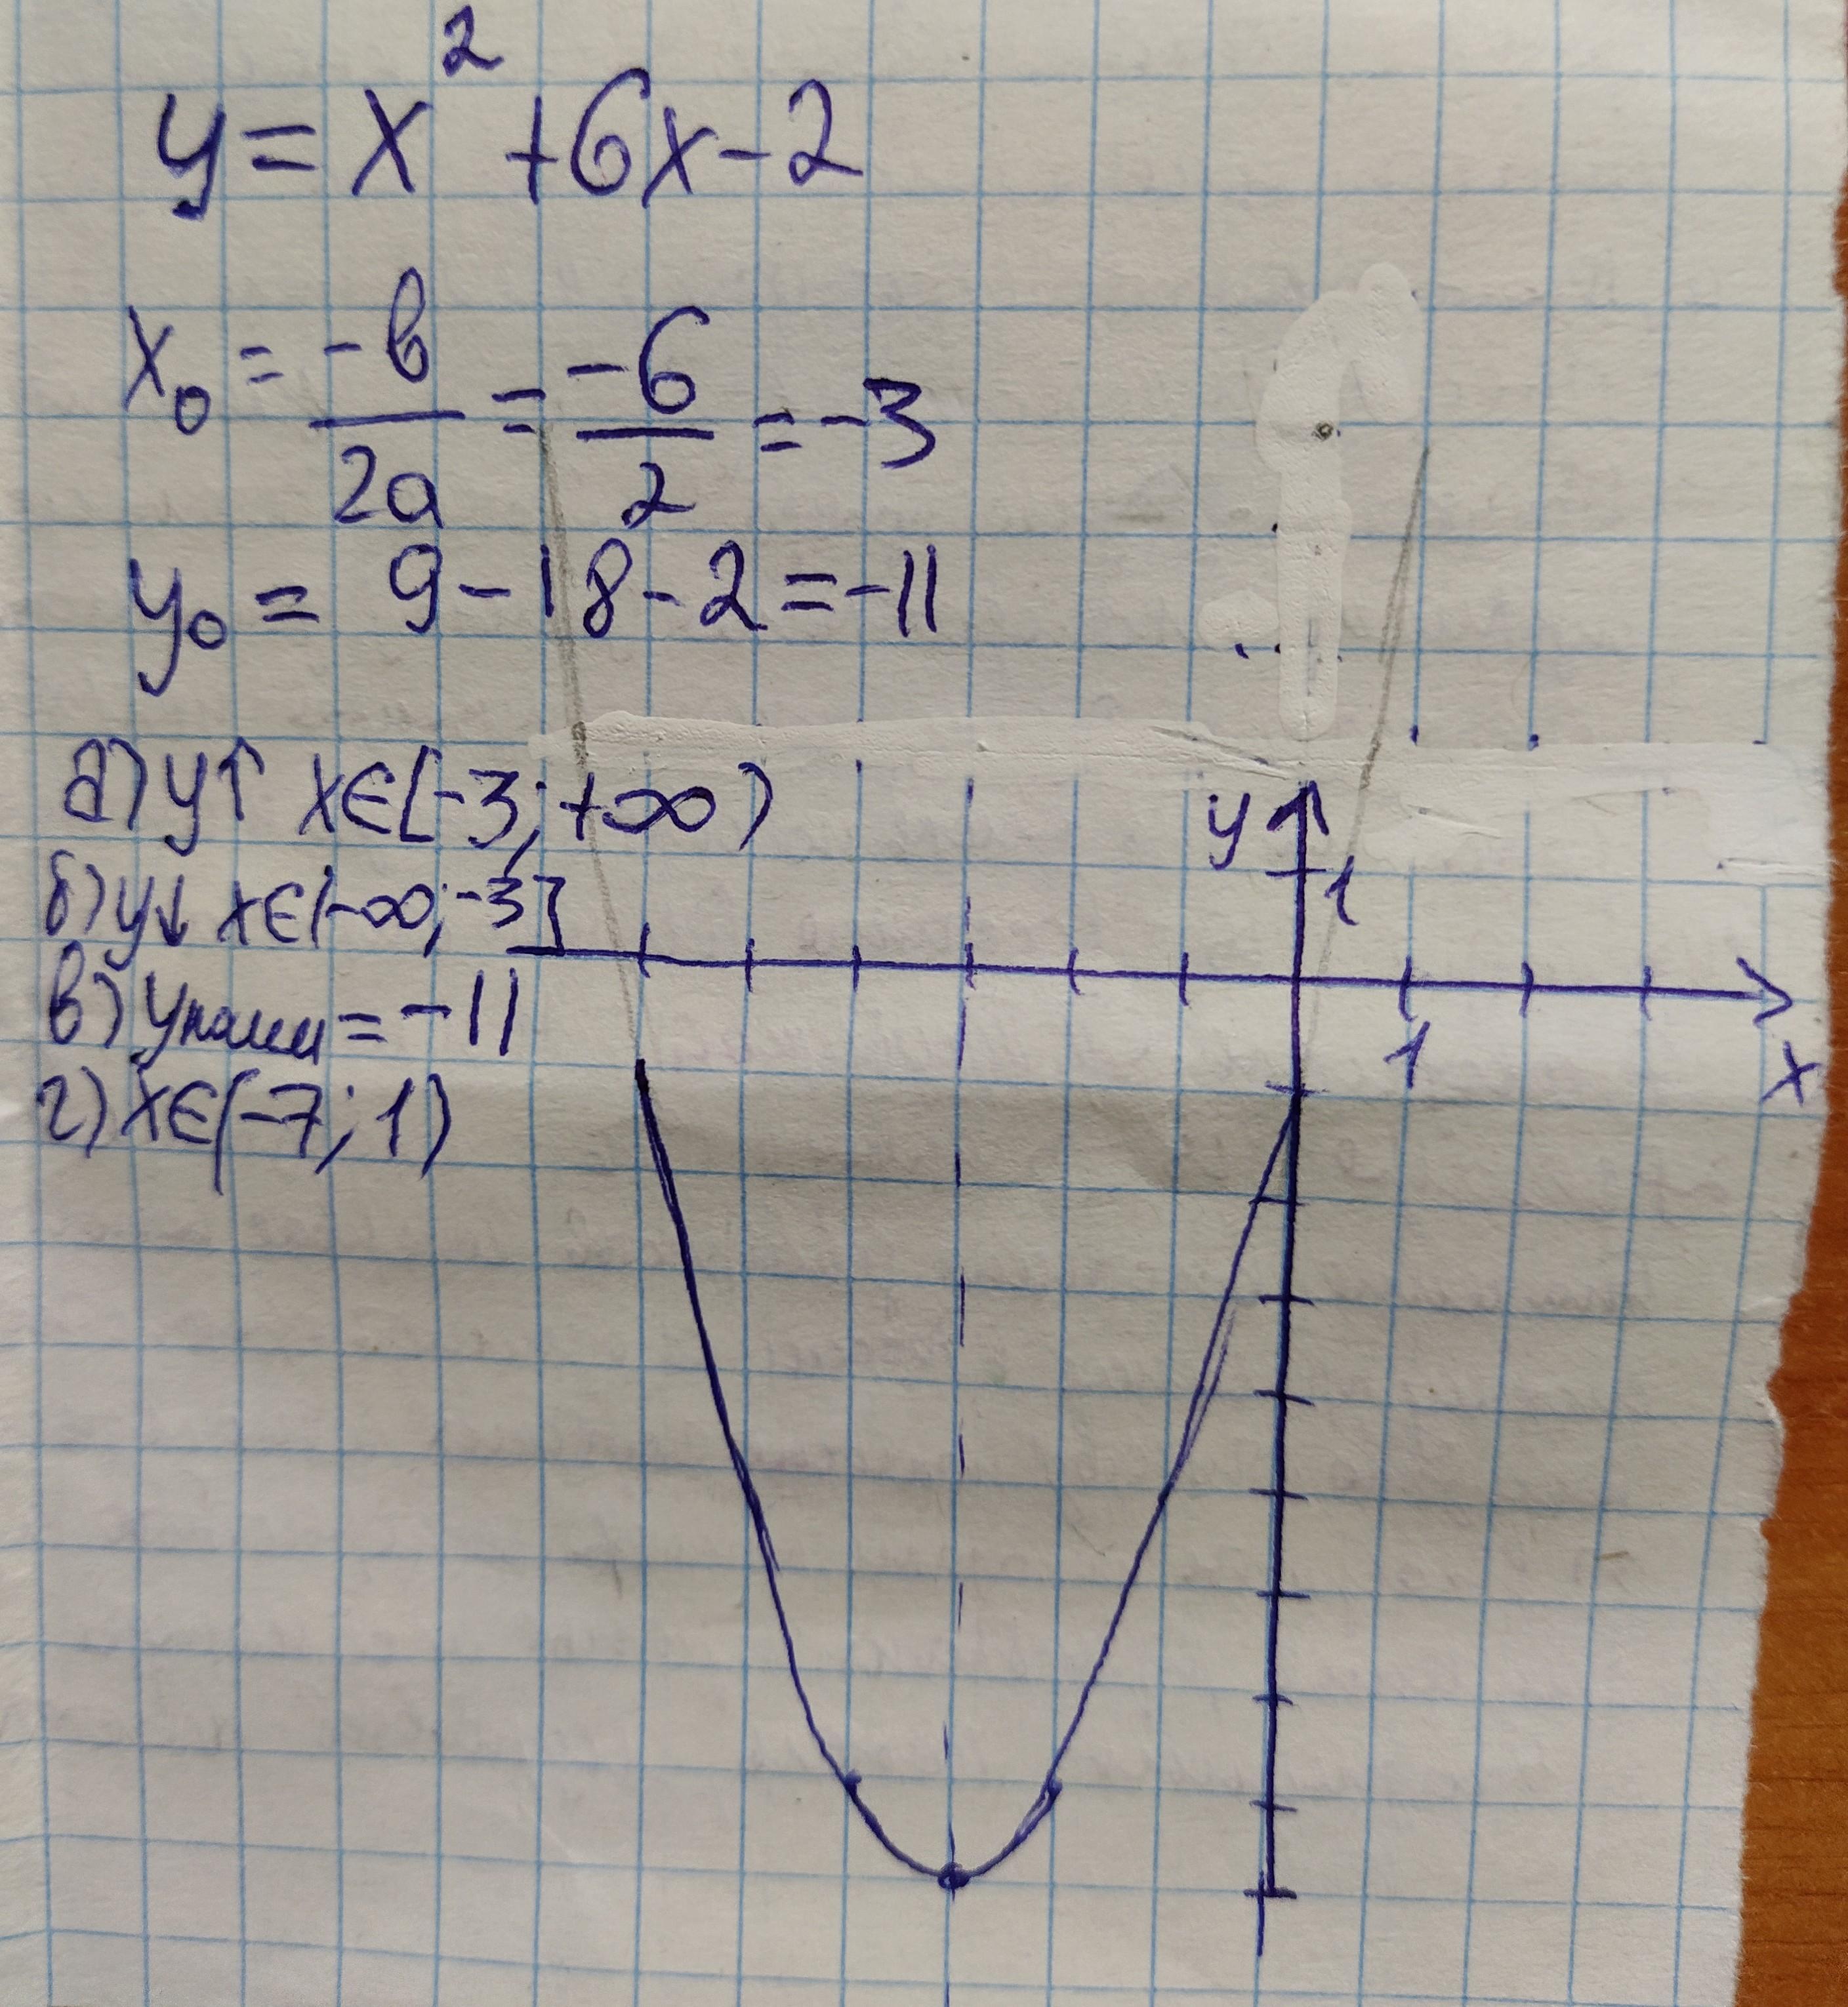 y = x² + 6x - 2
x₀ = -b/2a = -6/2 = -3
y₀ = 9 - 18 - 2 = -11
а) y↑ x∈[-3; +∞)
б) y↓ x∈(-∞; -3]
в) yнаим = -11
г) x∈(-7; 1)
y
1
1
x